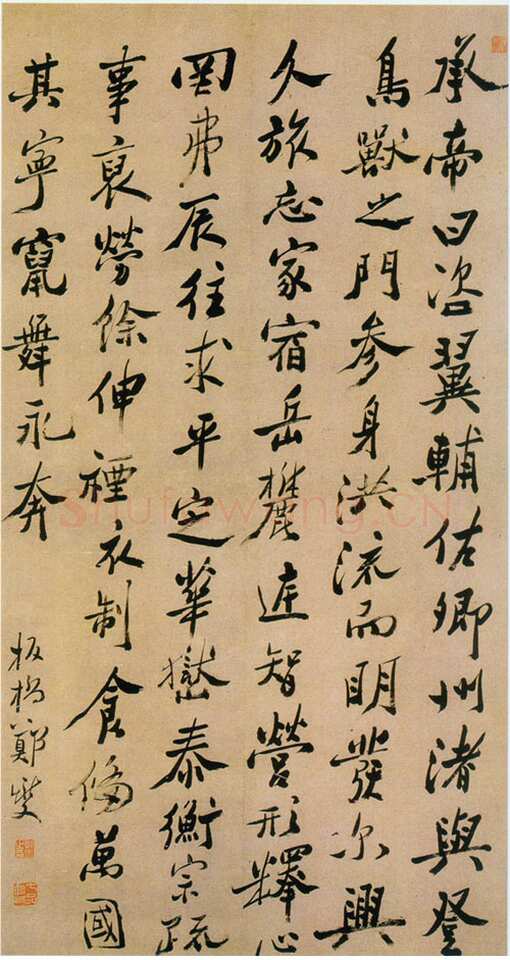 承帝曰咨翼輔佐卿州渚與登
鳥獸之門參身洪流而明發尔興
久旅忘家宿岳麓庭智營形釋心
罔弗辰往求平定華嶽泰衡宗疏
事裒勞餘伸禋衣制食備萬國
其寧竄舞永奔
板橋鄭燮